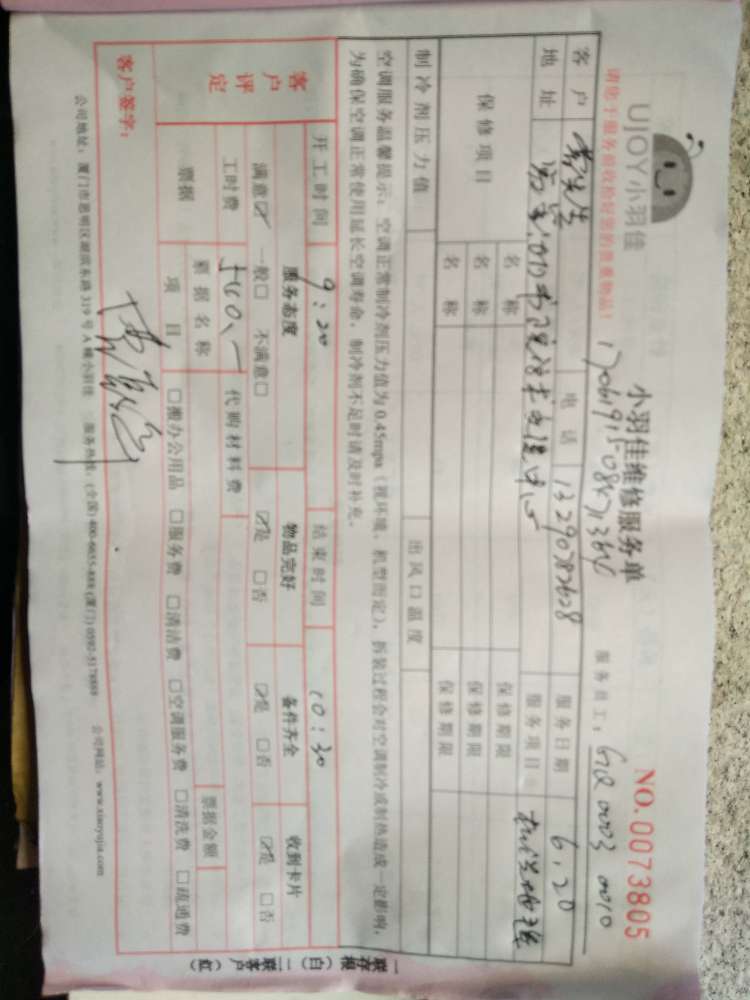 UJOY小羽佳
小羽佳维修服务单
NO.0073805
请您于服务前收拾好您的贵重物品!
服务员工:
客户
电话 13290782628
服务日期 6.20
地址
服务项目
保修项目
名称
保修期限
名称
保修期限
名称
保修期限
制冷剂压力值
出风口温度
空调服务温馨提示:空调正常制冷剂压力值为0.45mpa(视环境、机型而定),拆装过程会对空调制冷或制热造成一定影响,
为确保空调正常使用延长空调寿命,制冷剂不足时请及时补充。
开工时间 9:20
结束时间 10:30
客户评定
服务态度
物品完好
备件齐全
收到卡片
满意☑ 一般□ 不满意□
☑是 □否
☑是 □否
☑是 □否
工时费
代购材料费
票据
票据名称
票据金额
项目
□搬办公用品 □服务费 □清洁费 □空调服务费 □清洗费 □疏通费
客户签字:
公司地址:厦门市思明区湖滨东路319号A幢小羽佳 服务热线:(全国)400-6655-888 (厦门)0592-5178888 公司网站:www.xiaoyujia.com
一联存根(白) 二联客户(红)